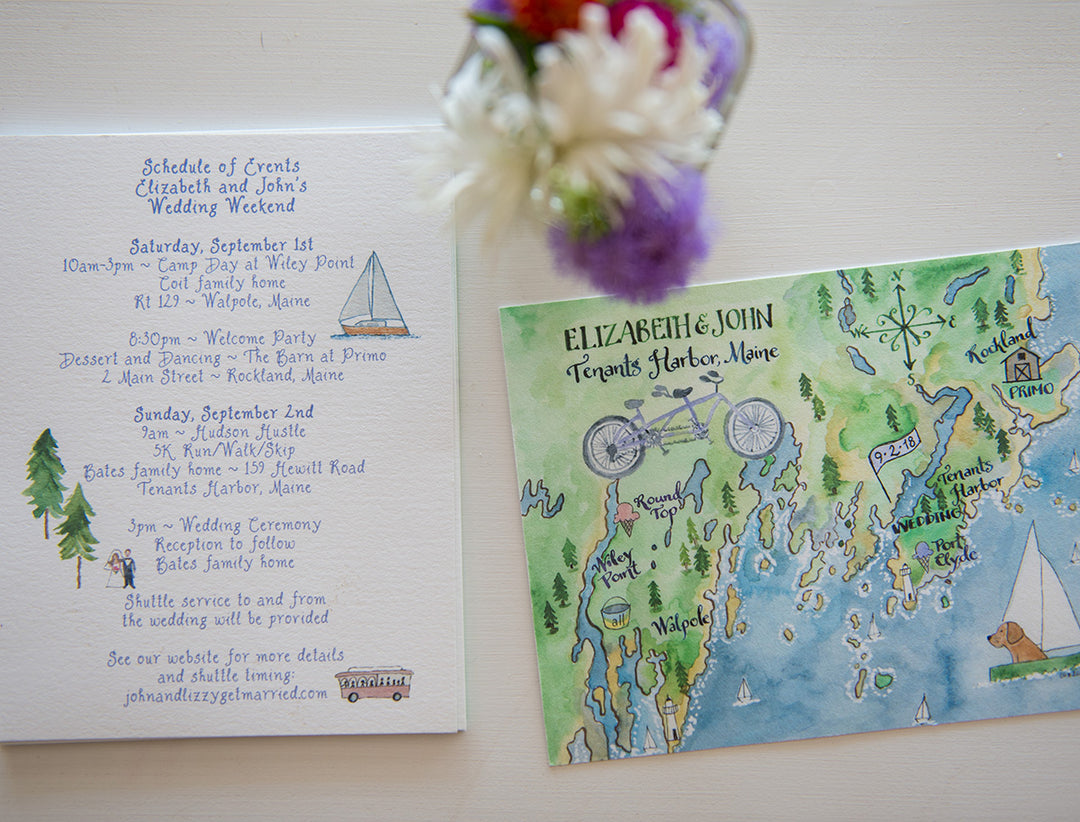 Schedule of Events
Elizabeth and John's
Wedding Weekend
Saturday, September 1st
10am-3pm ~ Camp Day at Wiley Point
Coit family home
Rt 129 ~ Walpole, Maine
8:30pm ~ Welcome Party
Dessert and Dancing ~ The Barn at Primo
2 Main Street ~ Rockland, Maine
Sunday, September 2nd
9am ~ Hudson Hustle
5K Run/Walk/Skip
Bates family home ~ 159 Hewitt Road
Tenants Harbor, Maine
3pm ~ Wedding Ceremony
Reception to follow
Bates family home
Shuttle service to and from
the wedding will be provided
See our website for more details
and shuttle timing:
johnandlizzygetmarried.com
ELIZABETH & JOHN
Tenants Harbor, Maine
W
E
S
Rockland
PRIMO
9·2·18
Tenants
Harbor
WEDDING
Port
Clyde
Round
Top
Wiley
Point
all
Walpole